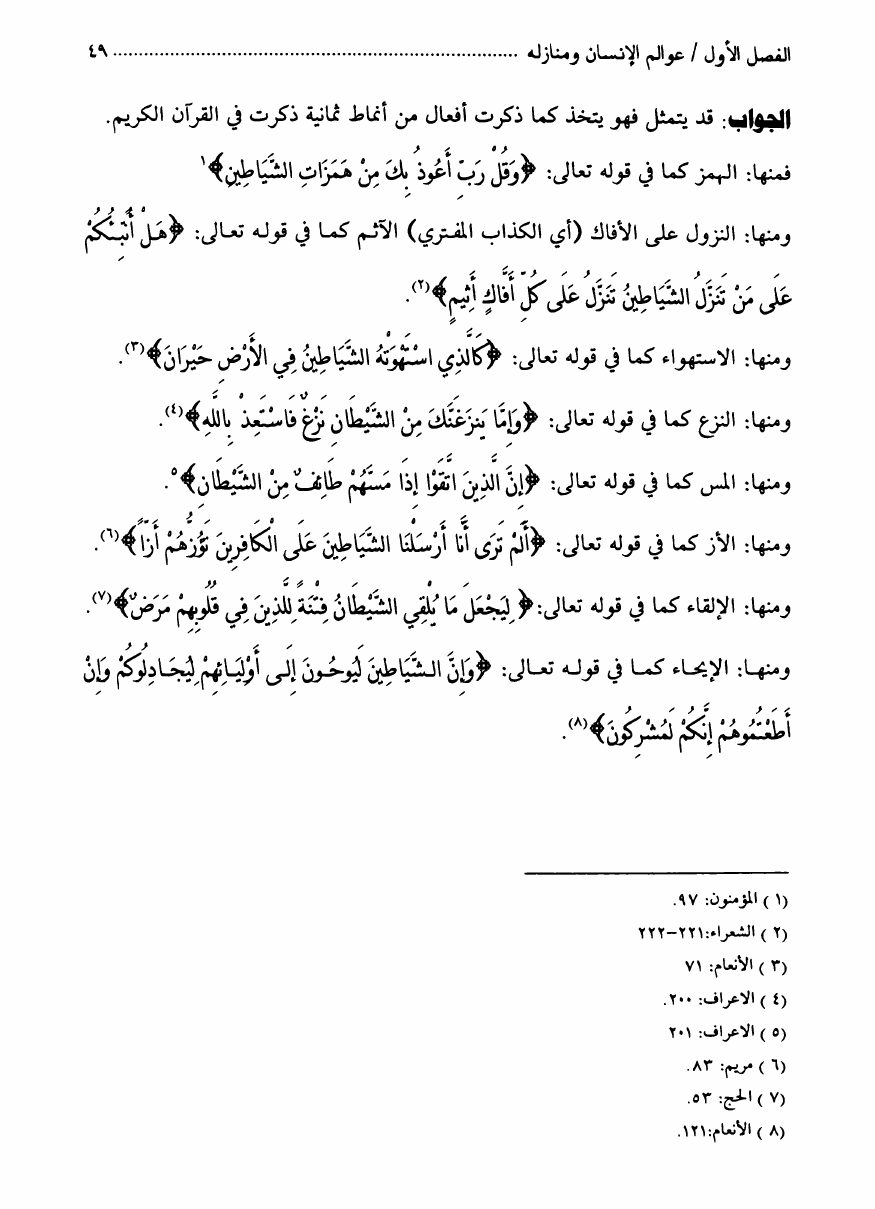 الفصل الأول / عوالم الإنسان ومنازله ........................................................................ ٤٩
الجواب: قد يتمثل فهو يتخذ كما ذكرت أفعال من أنماط ثمانية ذكرت في القرآن الكريم.
فمنها: الهمز كما في قوله تعالى: ﴿وَقُلْ رَبِّ أَعُوذُ بِكَ مِنْ هَمَزَاتِ الشَّيَاطِينِ﴾١
ومنها: النزول على الأفاك (أي الكذاب المفتري) الآثم كما في قوله تعالى: ﴿هَلْ أُنَبِّئُكُمْ
عَلَى مَنْ تَنَزَّلُ الشَّيَاطِينُ تَنَزَّلُ عَلَى كُلِّ أَفَّاكٍ أَثِيمٍ﴾(٢).
ومنها: الاستهواء كما في قوله تعالى: ﴿كَالَّذِي اسْتَهْوَتْهُ الشَّيَاطِينُ فِي الأَرْضِ حَيْرَانَ﴾(٣).
ومنها: النزع كما في قوله تعالى: ﴿وَإِمَّا يَنزَغَنَّكَ مِنْ الشَّيْطَانِ نَزْغٌ فَاسْتَعِذْ بِاللَّهِ﴾(٤).
ومنها: المس كما في قوله تعالى: ﴿إِنَّ الَّذِينَ اتَّقَوْا إِذَا مَسَّهُمْ طَائِفٌ مِنْ الشَّيْطَانِ﴾٥.
ومنها: الأز كما في قوله تعالى: ﴿أَلَمْ تَرَى أَنَّا أَرْسَلْنَا الشَّيَاطِينَ عَلَى الْكَافِرِينَ تَؤُزُّهُمْ أَزّاً﴾(٦).
ومنها: الإلقاء كما في قوله تعالى:﴿ لِيَجْعَلَ مَا يُلْقِي الشَّيْطَانُ فِتْنَةً لِلَّذِينَ فِي قُلُوبِهِمْ مَرَضٌ﴾(٧).
ومنها: الإيحاء كما في قوله تعالى: ﴿وَإِنَّ الشَّيَاطِينَ لَيُوحُونَ إِلَى أَوْلِيَائِهِمْ لِيُجَادِلُوكُمْ وَإِنْ
أَطَعْتُمُوهُمْ إِنَّكُمْ لَمُشْرِكُونَ﴾(٨).
(١ ) المؤمنون: ٩٧.
(٢ ) الشعراء:٢٢١-٢٢٢
(٣ ) الأنعام: ٧١
(٤ ) الاعراف: ٢٠٠.
(٥ ) الاعراف: ٢٠١
(٦ ) مريم: ٨٣.
(٧ ) الحج: ٥٣.
(٨ ) الأنعام:١٢١.